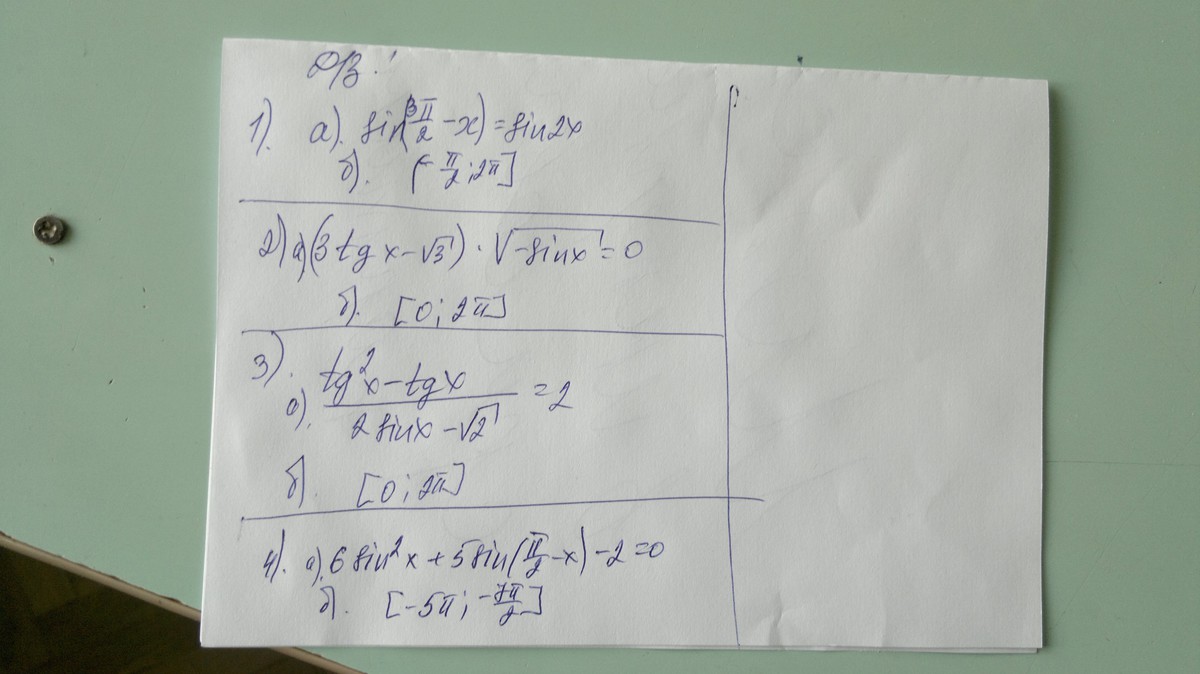 ДЗ:
1). а). sin(3π/2 - x) = sin2x
б). (-π/2; 2π]
2) а) (3tg x - √3) · √(-sinx) = 0
б). [0; 2π]
3).
а). (tg²x - tgx)/(2sinx - √2) = 2
б) [0; 2π]
4). а). 6sin²x + 5sin(π/2 - x) - 2 = 0
б). [-5π; -7π/2]